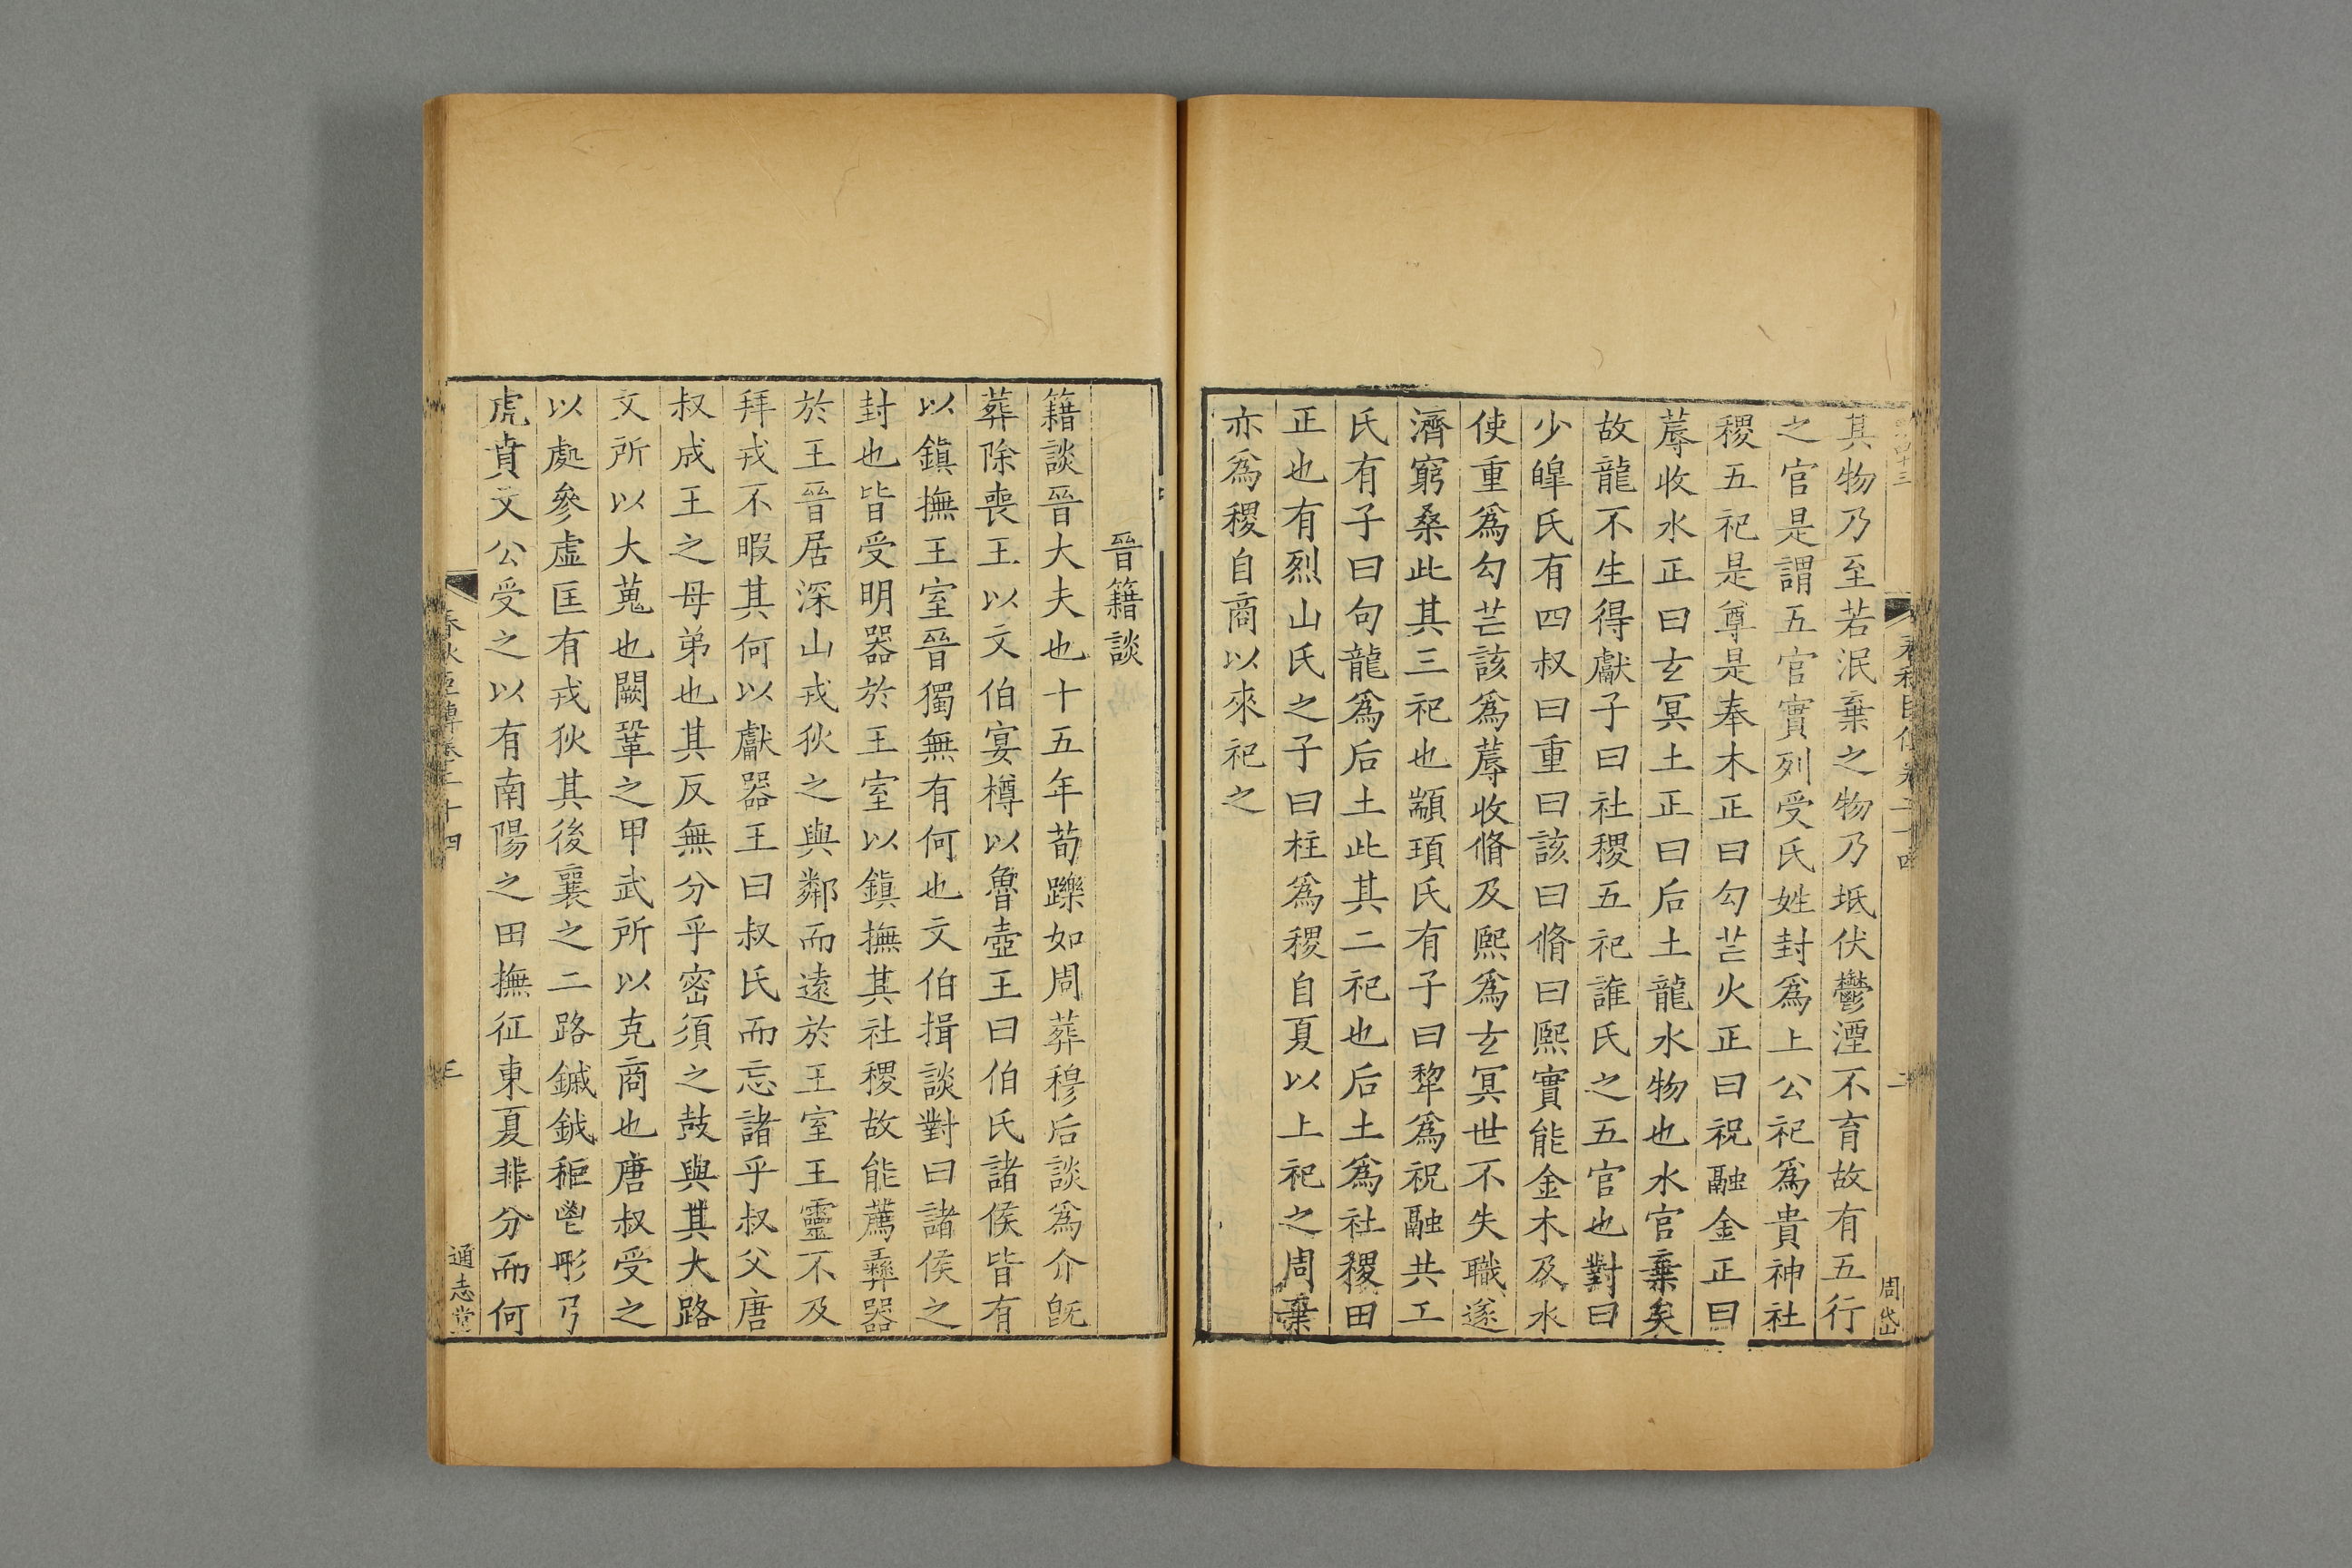 其物乃至若泯棄之物乃坻伏鬱湮不育故有五行
之官是謂五官實列受氏姓封爲上公祀爲貴神社
稷五祀是尊是奉木正曰勾芒火正曰祝融金正曰
蓐收水正曰玄冥土正曰后土龍水物也水官棄矣
故龍不生得獻子曰社稷五祀誰氏之五官也對曰
少皥氏有四叔曰重曰該曰脩曰熙實能金木及水
使重爲勾芒該爲蓐收脩及熙爲玄冥世不失職遂
濟窮桑此其三祀也顓頊氏有子曰犂爲祝融共工
氏有子曰句龍爲后土此其二祀也后土爲社稷田
正也有烈山氏之子曰柱爲稷自夏以上祀之周棄
亦爲稷自商以來祀之
二
周岱
晉籍談
籍談晉大夫也十五年荀躒如周葬穆后談爲介旣
葬除喪王以文伯宴樽以魯壺王曰伯氏諸侯皆有
以鎭撫王室晉獨無有何也文伯揖談對曰諸侯之
封也皆受明器於王室以鎭撫其社稷故能薦彝器
於王晉居深山戎狄之與鄰而遠於王室王靈不及
拜戎不暇其何以獻器王曰叔氏而忘諸乎叔父唐
叔成王之母弟也其反無分乎密須之鼓與其大路
文所以大蒐也闕鞏之甲武所以克商也唐叔受之
以處參虛匡有戎狄其後襄之二路鏚鉞秬鬯彤弓
虎賁文公受之以有南陽之田撫征東夏非分而何
春秋臣傳卷二十四
三
通志堂